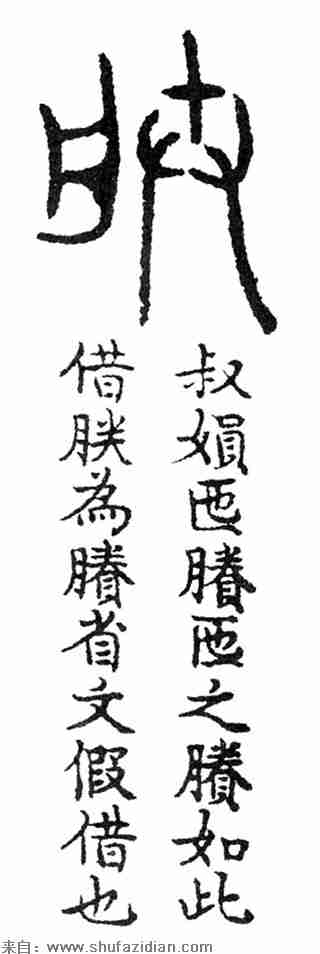 叔娟匜賸匜之賸如此
借朕為賸省文假借也
来自：www.shufazidian.com